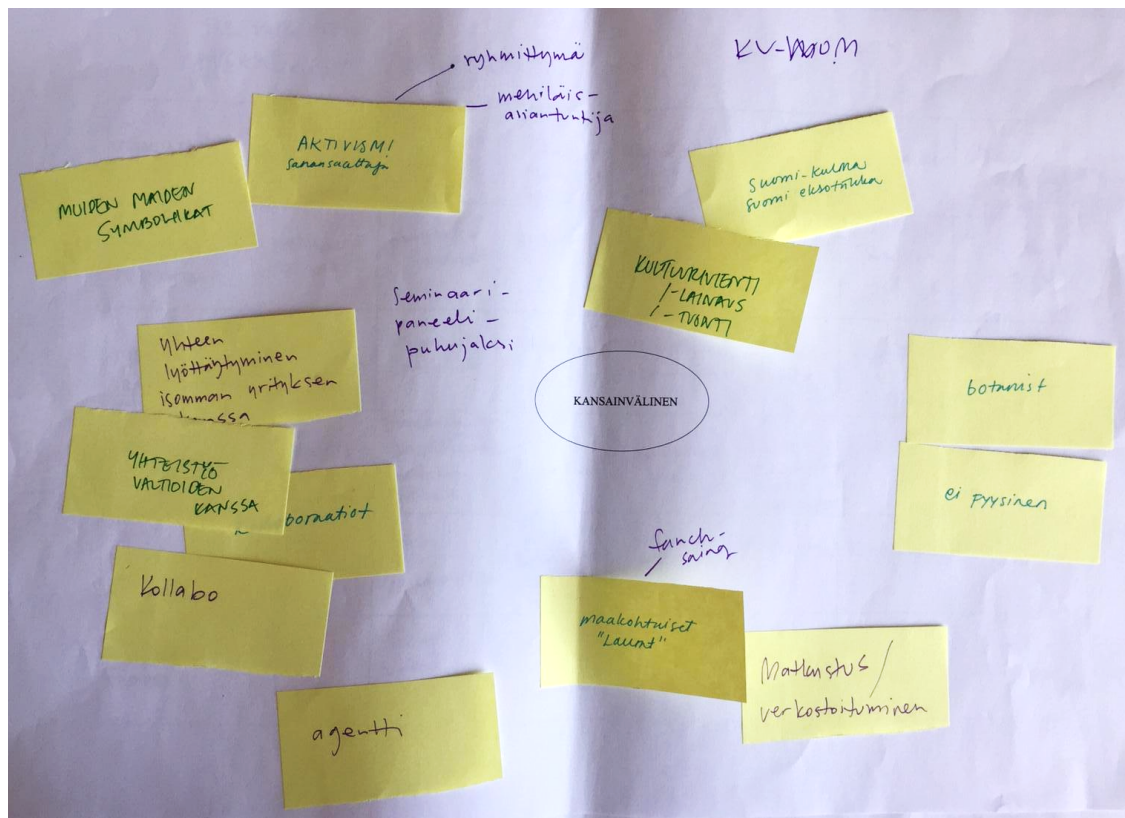 ryhmittymä
mehiläis-
asiantuntija
AKTIVISMI
sanansaattaja
MUIDEN MAIDEN
SYMBOLIIKAT
Suomi-kulma
Suomi eksotiikka
KULTUURIVIENTI
/-LAINAUS
/-TUONTI
Seminaari-
paneeli-
puhujaksi
yhteen
lyöttäytyminen
isomman yrityksen
KANSAINVÄLINEN
botanist
ei fyysinen
YHTEISTYÖ
VALTIOIDEN
KANSSA
Kollabo
franch-
saing
maakohtaiset
"Laumt"
Matkustus/
verkostoituminen
agentti